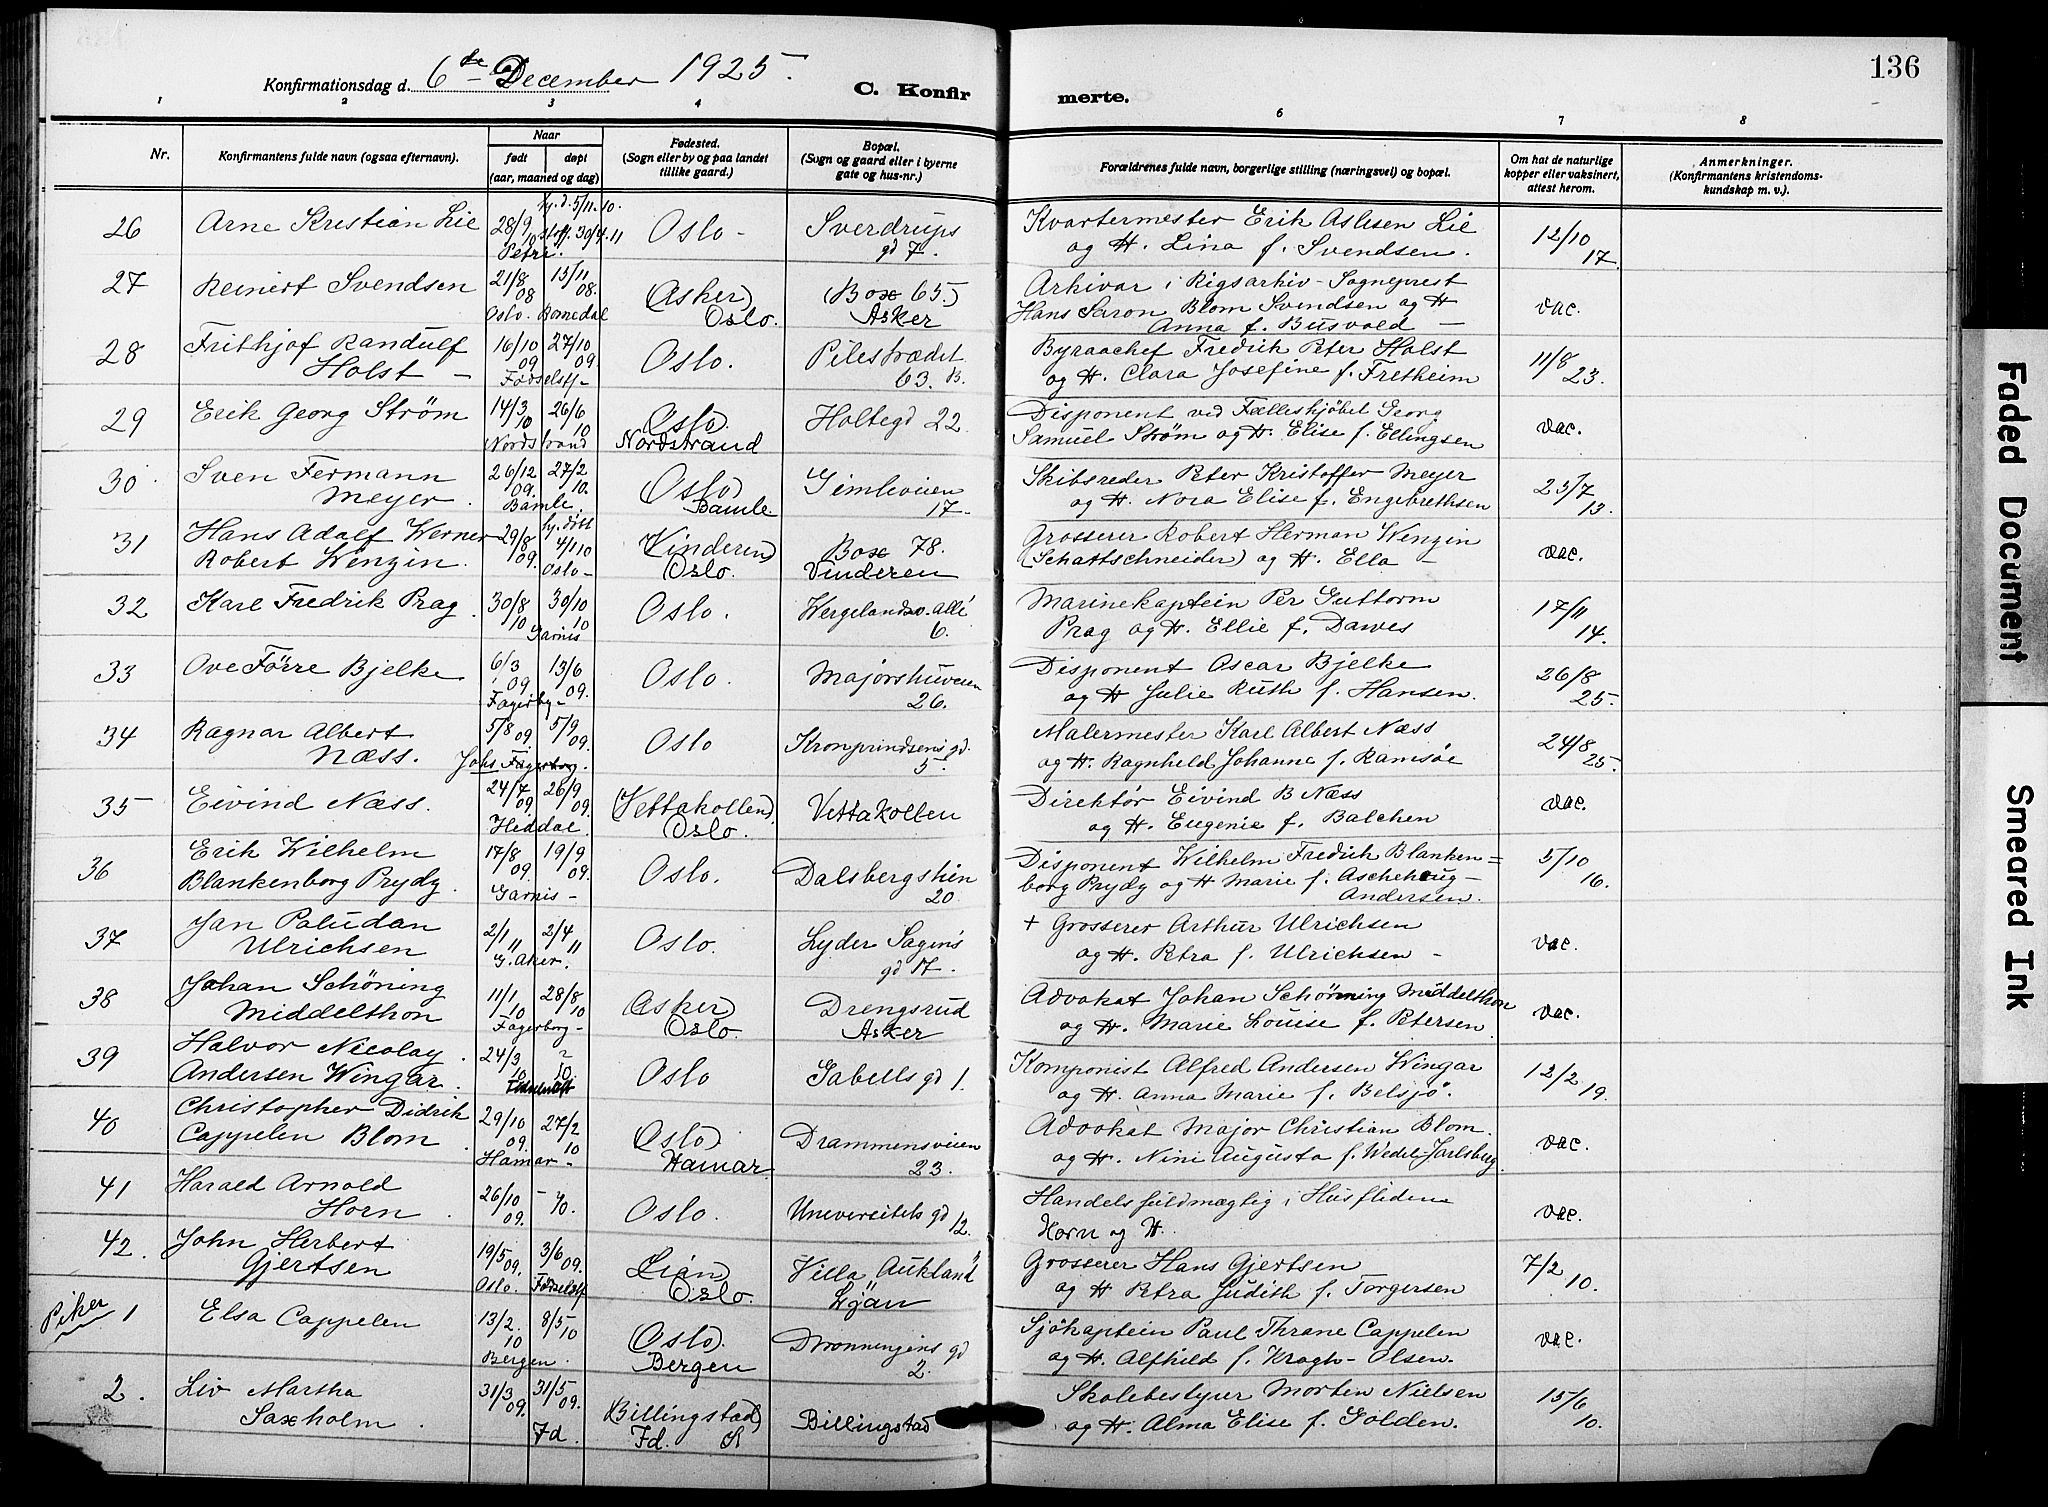 136
Konfirmationsdag d. 6te December 1925.
C. Konfirmerte.
1 2 3 4 5 6 7 8
Nr.
Konfirmantens fulde navn (ogsaa efternavn).
Naar
født
døpt
(aar, maaned og dag)
Fødested.
(Sogn eller by og paa landet
tillike gaard.)
Bopæl.
(Sogn og gaard eller i byerne
gate og hus-nr.)
Forældrenes fulde navn, borgerlige stilling (næringsvei) og bopæl.
Om hat de naturlige
kopper eller vaksinert,
attest herom.
Anmerkninger.
(Konfirmantens kristendoms-
kundskap m. v.)
hj. d. 5/11.10.
26 Arne Kristian Lie 28/9 10 30/4.11 Oslo - Sverdrups Kvartermester Erik Aslesen Lie 12/10
Petri. gd 7. og H. Lina f. Svendsen. 17.
27 Reinert Svendsen 21/8 08 15/11 08. (Asker) (Box 65.) Arkivar i Rigsarkiv - Sogneprest vac.
Oslo. Romedal Oslo. Asker Hans Saron Blom Svendsen og H
Anna f. Busvold -
28 Frithjof Randulf 16/10 09 27/10 09 Oslo. Pilestrædet Byraachef Fredrik Peter Holst 11/8
Holst - Fødselsst- 63. B. og H. Clara Josefine f. Fretheim 23.
29 Erik Georg Strøm 14/3 10 26/6 10 (Oslo) Holtegd 22 Disponent ved Fælleskjøbet Georg vac.
Nordstrand Nordstrand Samuel Strøm og H. Elise f. Ellingsen
30 Sven Fermann 26/12 09. 27/2 10. (Oslo) Gimleveien Skibsreder Peter Kristoffer Meyer 23/7
Meyer. Bamle. Bamle 17. og H. Nora Elise f. Engebrethsen 13.
31 Hans Adolf Werner 29/8 09. hj. døbt 4/1 10 (Vinderen) Box 78. Grosserer Robert Herman Wenzin vac.
Robert Wenzin. Oslo- Oslo. Vinderen (Schattschneider) og H. Ella -
32 Karl Fredrik Prag. 30/8 10 30/10 10 Oslo. Wergelandsv. Allé Marinekaptein Per Guttorm 17/11
Garnis 6. Prag og H. Ellie f. Dawes 14.
33 Ove Förre Bjelke 6/3 09. 13/6 09. Oslo. Majorstuveien Disponent Oscar Bjelke 26/8
Fagerbg- 26. og H Julie Ruth f. Hansen. 25.
34 Ragnar Albert 5/8 09 5/9 09. Oslo Kronprindsens gd. Malermester Karl Albert Næss 24/8
Næss. Johs Fagerborg. 5. og H. Ragnheld Johanne f. Ramsöe 25.
35 Eivind Næss. 24/7 09. 26/9 09. (Vettakollen) Vettakollen Direktör Eivind B Næss vac.
Heddal. Oslo. og H. Eugenie f. Balchen
36 Erik Wilhelm 17/8 09. 19/9 09. Oslo. Dalsbergstien Disponent Wilhelm Fredrik Blanken= 5/10
Blankenborg Prydz. Garnis - 20. borg Prydz og H Marie f. Aschehoug- 16.
Andersen.
37 Jan Paludan 2/1 11 2/4 11 Oslo. Lyder Sagens + Grosserer Arthur Ulrichsen vac.
Ulrichsen G. Aker. gd 17. og H. Petra f. Ulrichsen -
38 Johan Schöning 11/1 10 28/8 10 (Asker) Drengsrud Advokat Johan Schönning Middelthon vac.
Middelthon Fagerborg- Oslo. Asker og H. Marie Louise f. Petersen
39 Halvor Nicolay. 24/3 10 ? 10. Oslo Gabels gd 1. Komponist Alfred Andersen Wingar 12/2
Andersen Wingar. og H. Anna Marie f. Belsjö. 19.
40 Christopher Didrik 29/10 09. 27/2 10 (Oslo) Drammensveien Advokat Major Christian Blom. vac.
Cappelen Blom. Hamar- Hamar. 23. og H. Nini Augusta f. Wedel-Jarlsberg.
41 Harald Arnold 26/10 09. - Oslo. Universitets gd Handelsfuldmægtig i Husfliden vac.
Horn. 12. Horn og H.
42. John Herbert 19/5 09. 3/6 09. (Lian) Villa Aukland Grosserer Hans Gjertsen 7/2
Gjertsen Oslo. Fødselsst Oslo. Ljan og H Petra Judith f. Torgersen 10.
Piker 1 Elsa Cappelen 13/2. 10 8/5 10 (Oslo) Dronningens gd Sjökaptein Paul Thrane Cappelen vac.
Bergen. Bergen 2. og H. Alfhild f. Kragh-Olsen.
2. Liv Martha 31/3 09. 31/5 09. (Billingstad) Billingstad Skolebestyrer Morten Nielsen 15/6
Saxholm. Fd. Fd. og H. Alma Elise f. Golden. 10.
Faded Document
Smeared Ink